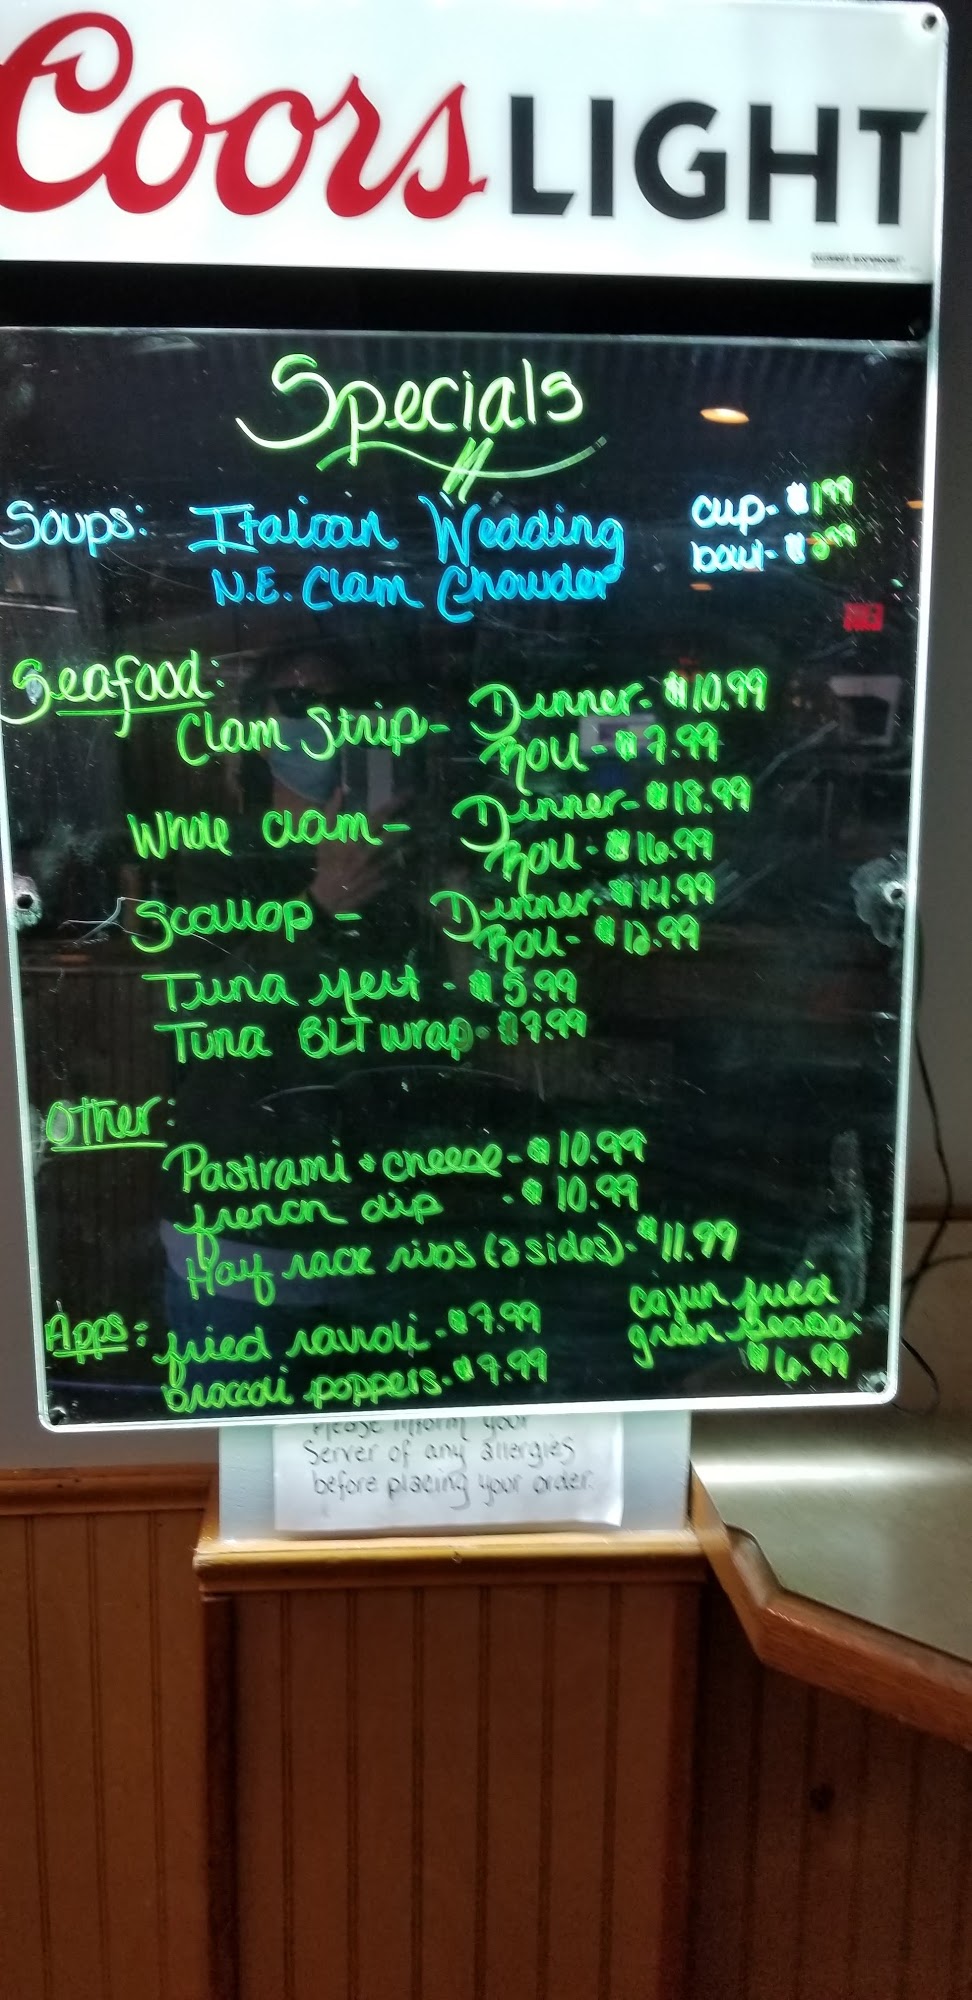 Coors LIGHT
Specials
Soups: Italian Wedding cup- $1.99
N.E. Clam Chowder bowl- $2.99
Seafood:
Clam Strip- Dinner- $10.99
Roll- $7.99
Whole clam- Dinner- $18.99
Roll- $16.99
Scallop - Dinner- $14.99
Roll- $12.99
Tuna melt - $5.99
Tuna BLT wrap- $7.99
Other:
Pastrami & cheese- $10.99
french dip - $10.99
Half rack ribs (2 sides)- $11.99
Apps: fried ravioli - $7.99
broccoli poppers- $7.99
cajun fried
green beans
$6.99
Please inform your
Server of any allergies
before placing your order.